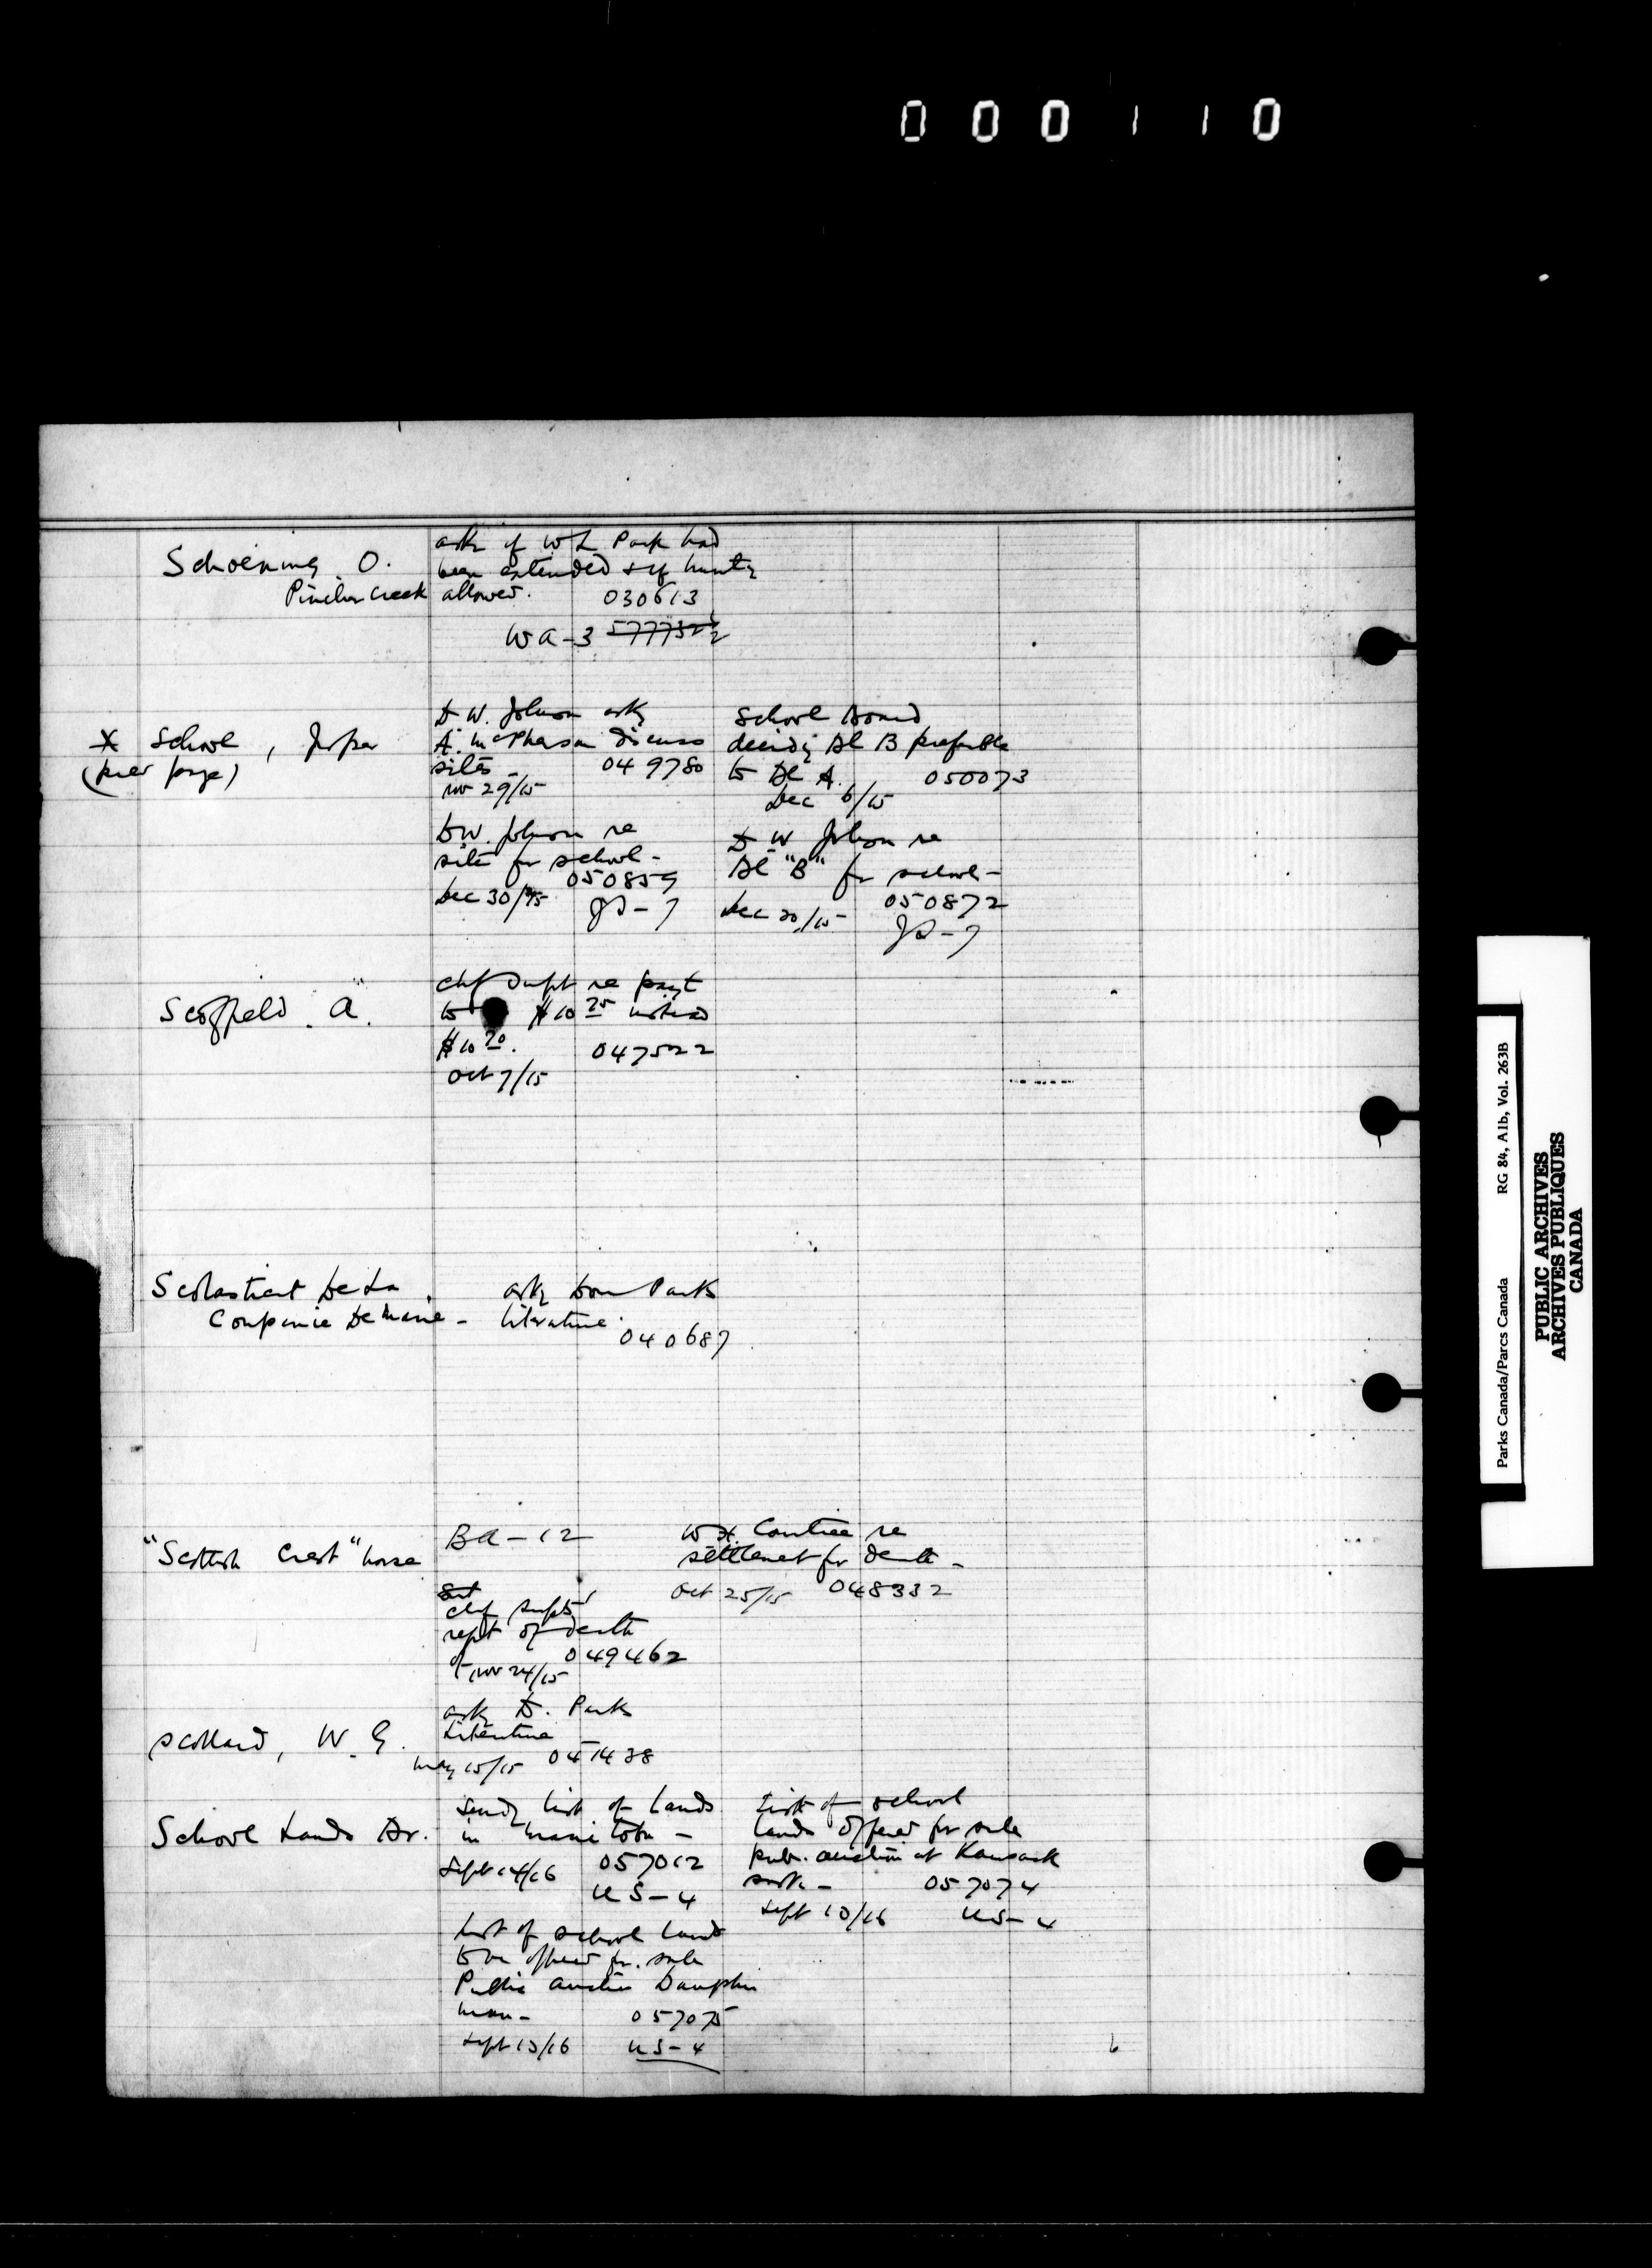 000110
Schoening O.
Pincher Creek
asks if W L Park had
been extended & if huntg
allowed. 030613
WA-3
X School, Jasper
(prev page)
D W. Johnson asks
A. McPherson discuss
sites - 049780
Nov 29/15
School Board
decidg Bl B preferable
to Bl A. 050073
Dec 6/15
D.W. Johnson re
site for school -
050859
Dec 30/15 JD-7
D W Johnson re
Bl "B" for school -
050872
Dec 30/15 JD-7
Scoffield. A.
Chf Supt re payt
to $10 25 instead
$10 20. 047522
Oct 7/15
Scolasticat De La
Companie De Marie -
askg Dom Parks
literature.
040687
"Scottish Crest" horse
BA-12
Chf Supts
rept of death
049462
Nov 24/15
re
settlement for death -
Oct 25/15 048332
Scollard, W. G.
askg D. Parks
Literature
May 15/15 041438
School Lands Br.
Sendg list of Lands
in Manitoba -
Sept 14/16 057012
US-4
List of school
lands offered for sale
pub. auction at Kamsack
Sask - 057074
Sept 13/16 US-4
List of school lands
to be offered for sale
Public auction Dauphin
Man - 057075
Sept 13/16 US-4
Parks Canada/Parcs Canada RG 84, A1b, Vol. 263B
PUBLIC ARCHIVES
ARCHIVES PUBLIQUES
CANADA